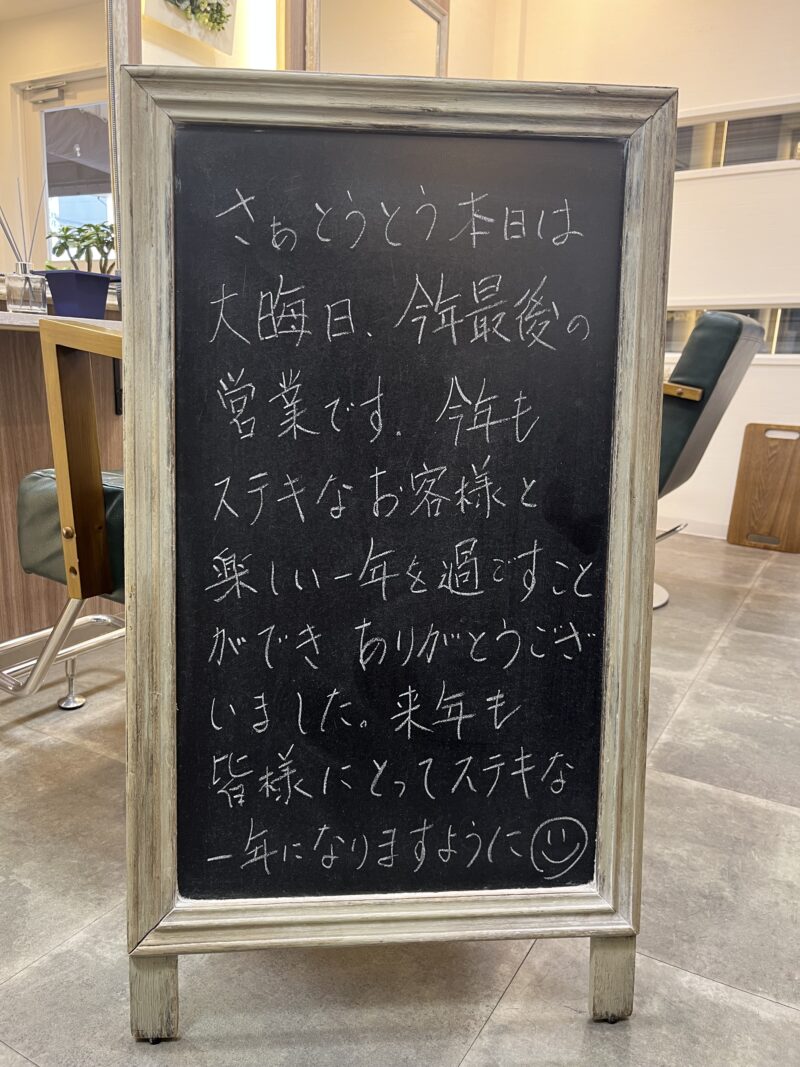 さぁとうとう本日は
大晦日、今年最後の
営業です。今年も
ステキなお客様と
楽しい一年を過ごすこと
ができ ありがとうござ
いました。来年も
皆様にとってステキな
一年になりますように